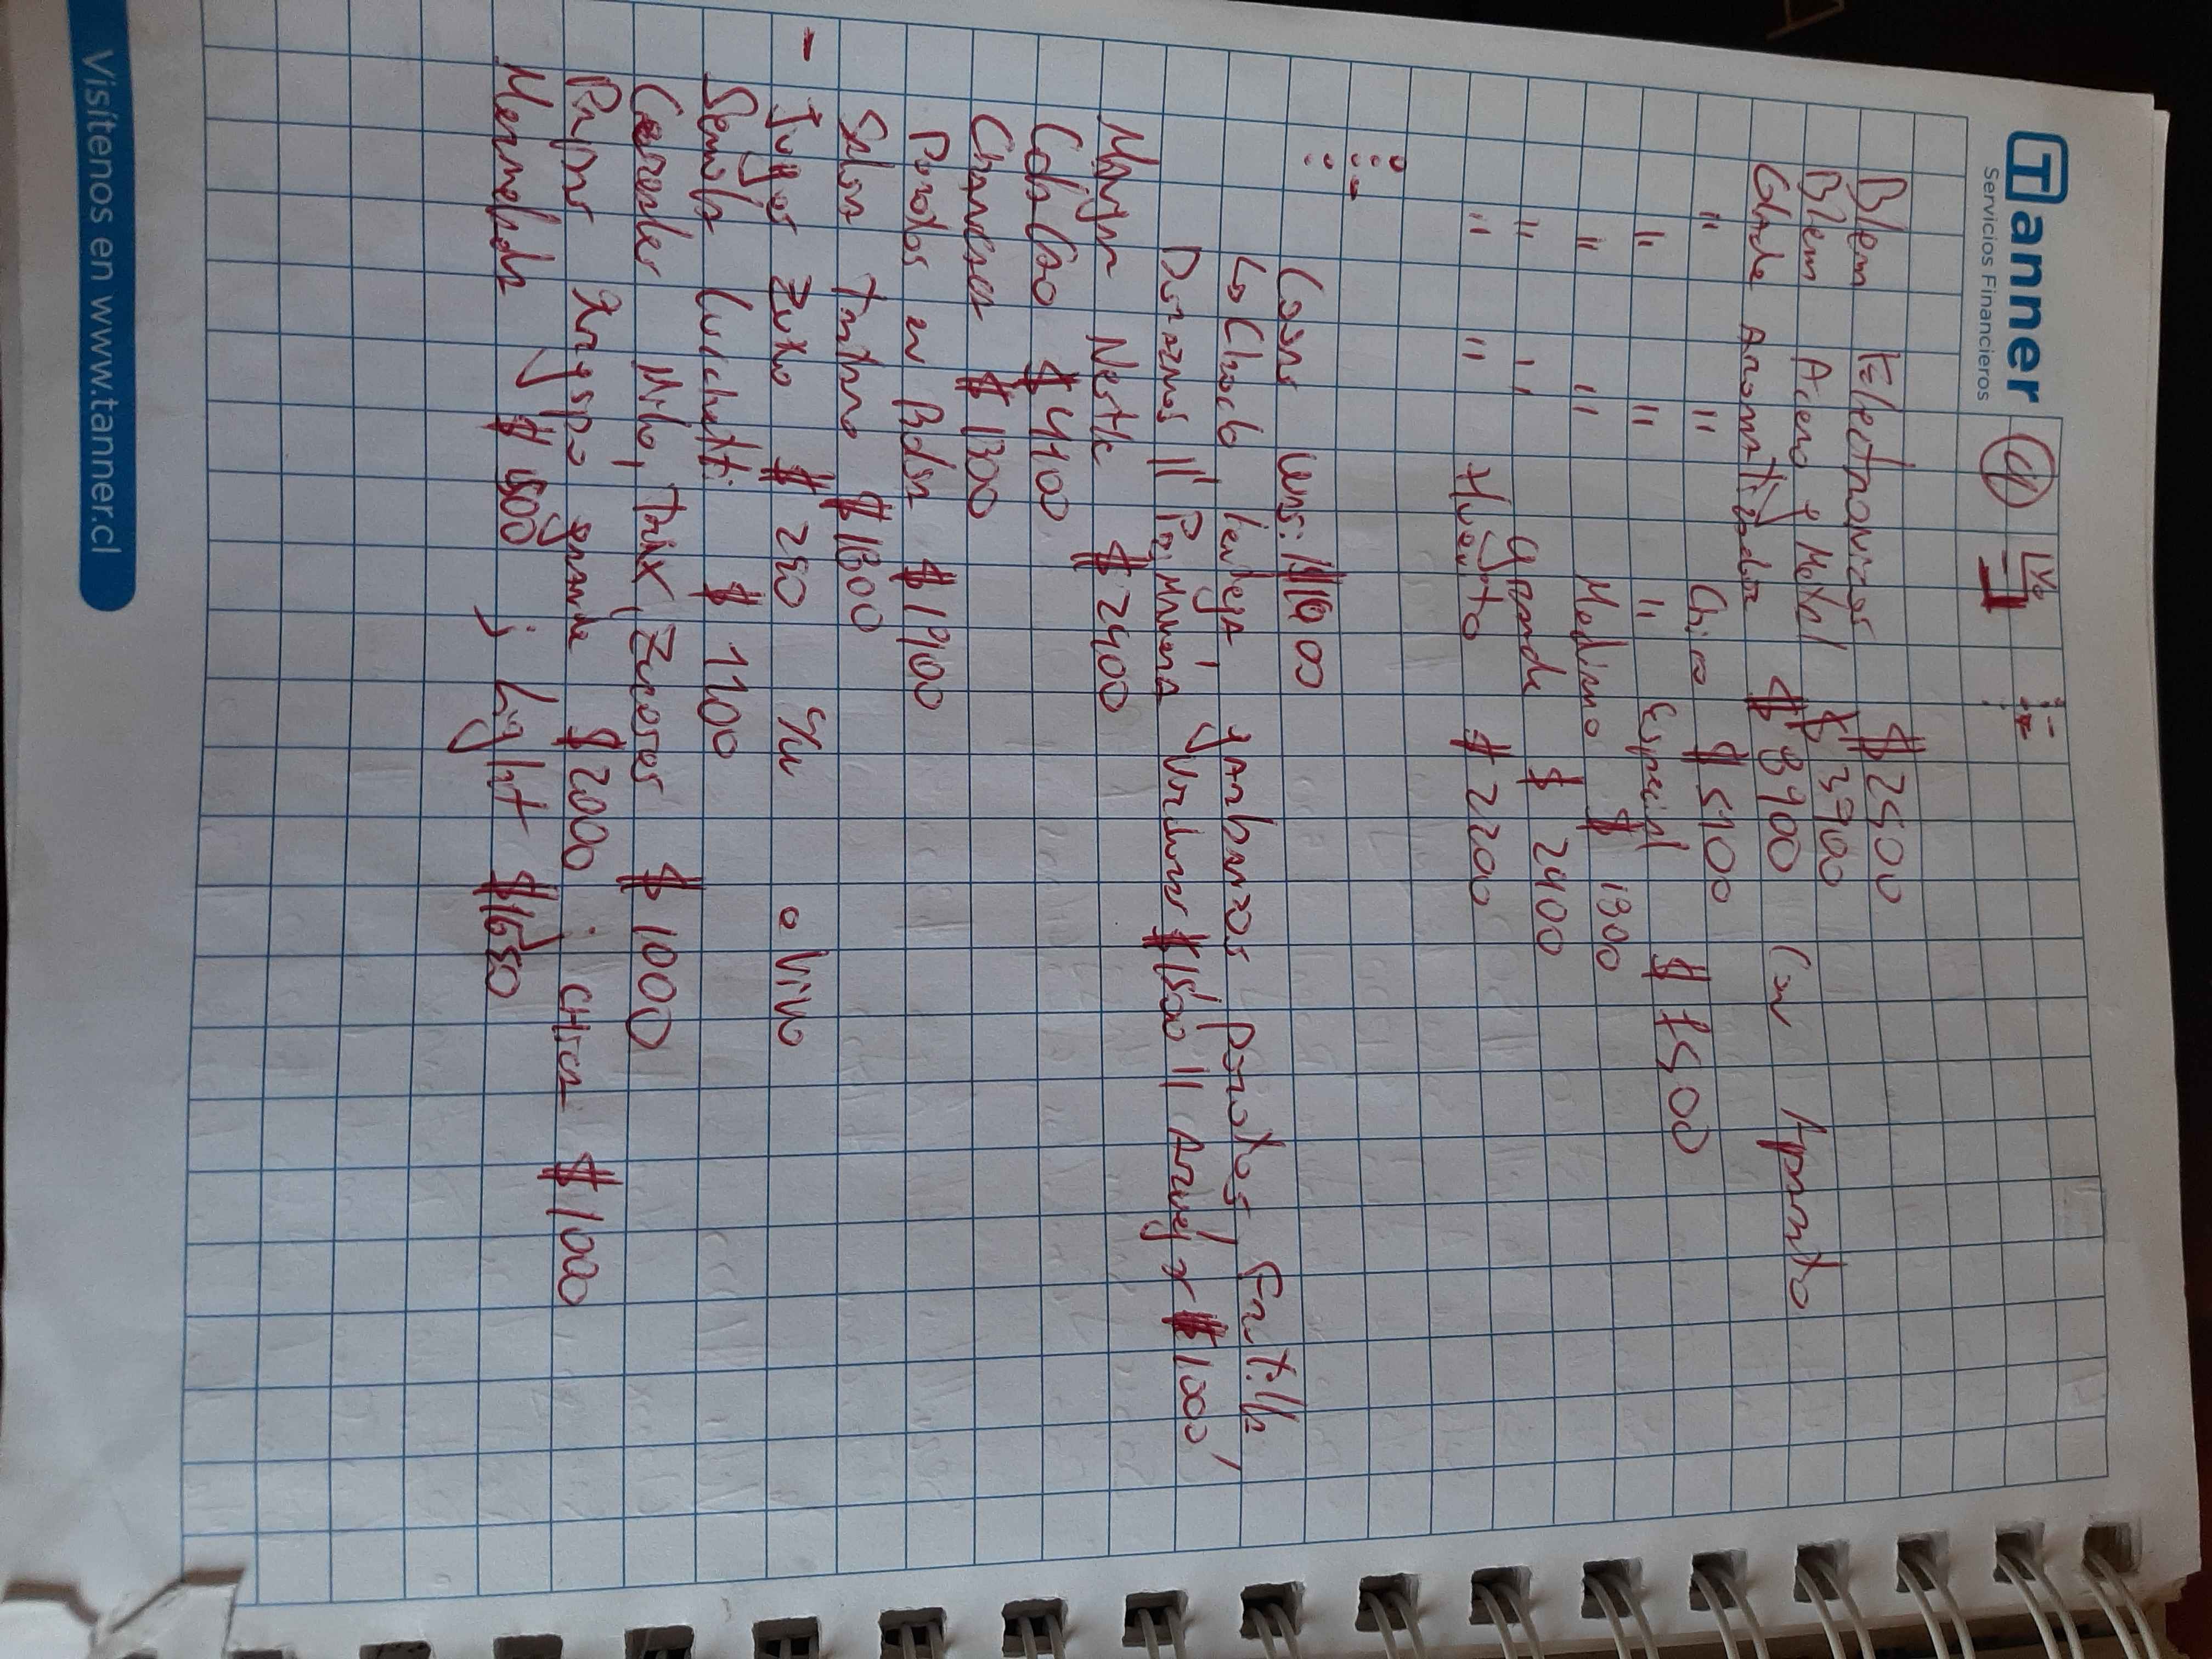 Tanner
Servicios Financieros
4
Blem Electronicos $2500
Blem Acero y Metal $3900
Glade Aromatizador $8900 Con Aparato
" " Chico $5900
" " " Especial $1500
" " Medino $1900
" ,, grande $2400
" " Huevito $2200
Lo Choclo, lenteja, garbanzos, porotos, Frutilla
Duraznos || Palmera y Verduras $1500 || Arvejas $1000
Manjar Nestle $2400
Cola Cao $4100
Chancaca $1300
Porotos en Bolsa $1900
Salsa Tartara $1800
- Jugos Zuko $250 S/u o Livo
Semola Luichetti $1100
Cereales Milo, Trix, Zucosos $1000
Papas Kryspo grande $2000 ; CHica $1000
Mermelada $1500 ; Light $1650
Visítenos en www.tanner.cl